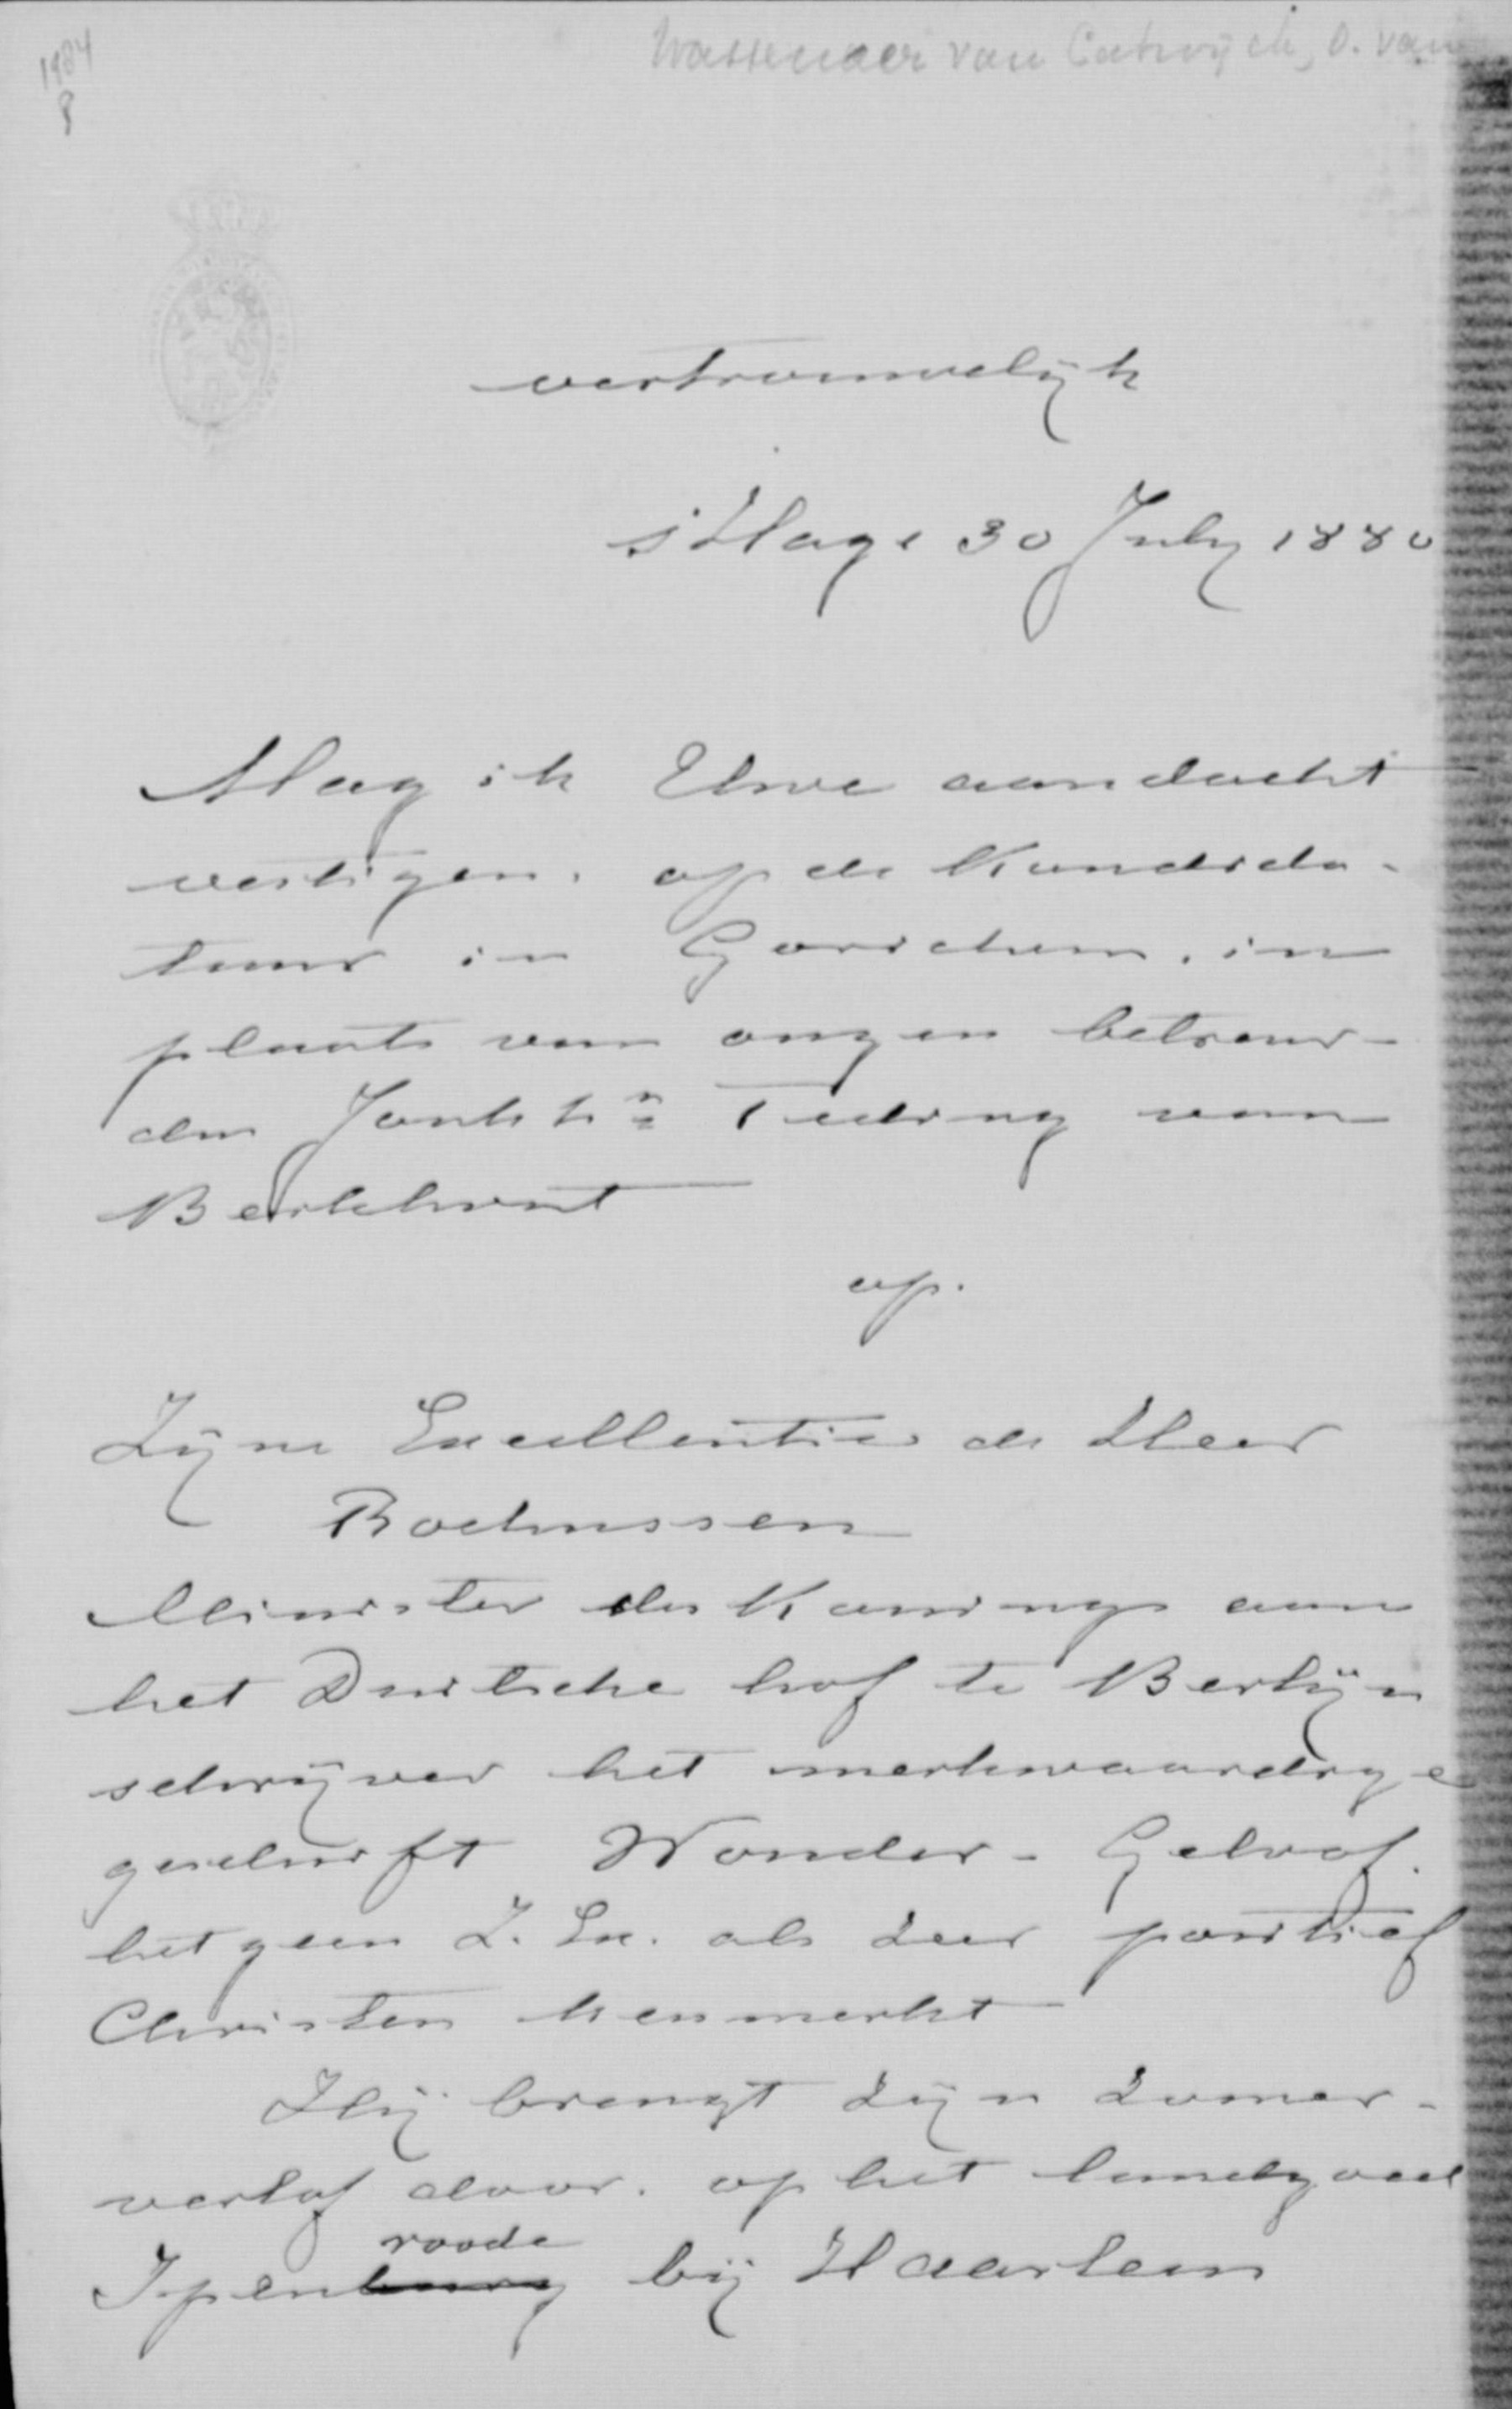 1984
8
Wassenaer van Catwijck, O. van
vertrouwelijk
s'Hage 30 July 1880
Mag ik Uwe aandacht
vestigen. op de Kandida-
tuur in Gorichem. in
plaats van onzen betreur-
den Jonkhr Teding van
Berkhout
op.
Zijne Excellentie de Heer
Rochussen
Minister des Konings aan
het Duitsche hof te Berlijn
schrijver het merkwaardige
geschrift Wonder-Geloof.
hetgeen Z. Ex. als zeer positief
Christen kenmerkt
Hij brengt zijn zomer-
verlof door. op het landgoed
roode
Ipenburg bij Haarlem